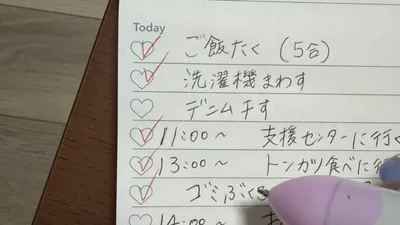 Today
ご飯たく (5合)
洗濯機まわす
デニム干す
11:00~ 支援センターに行く
13:00~ トンカツ食べに行
ゴミぶくろ
14:00~